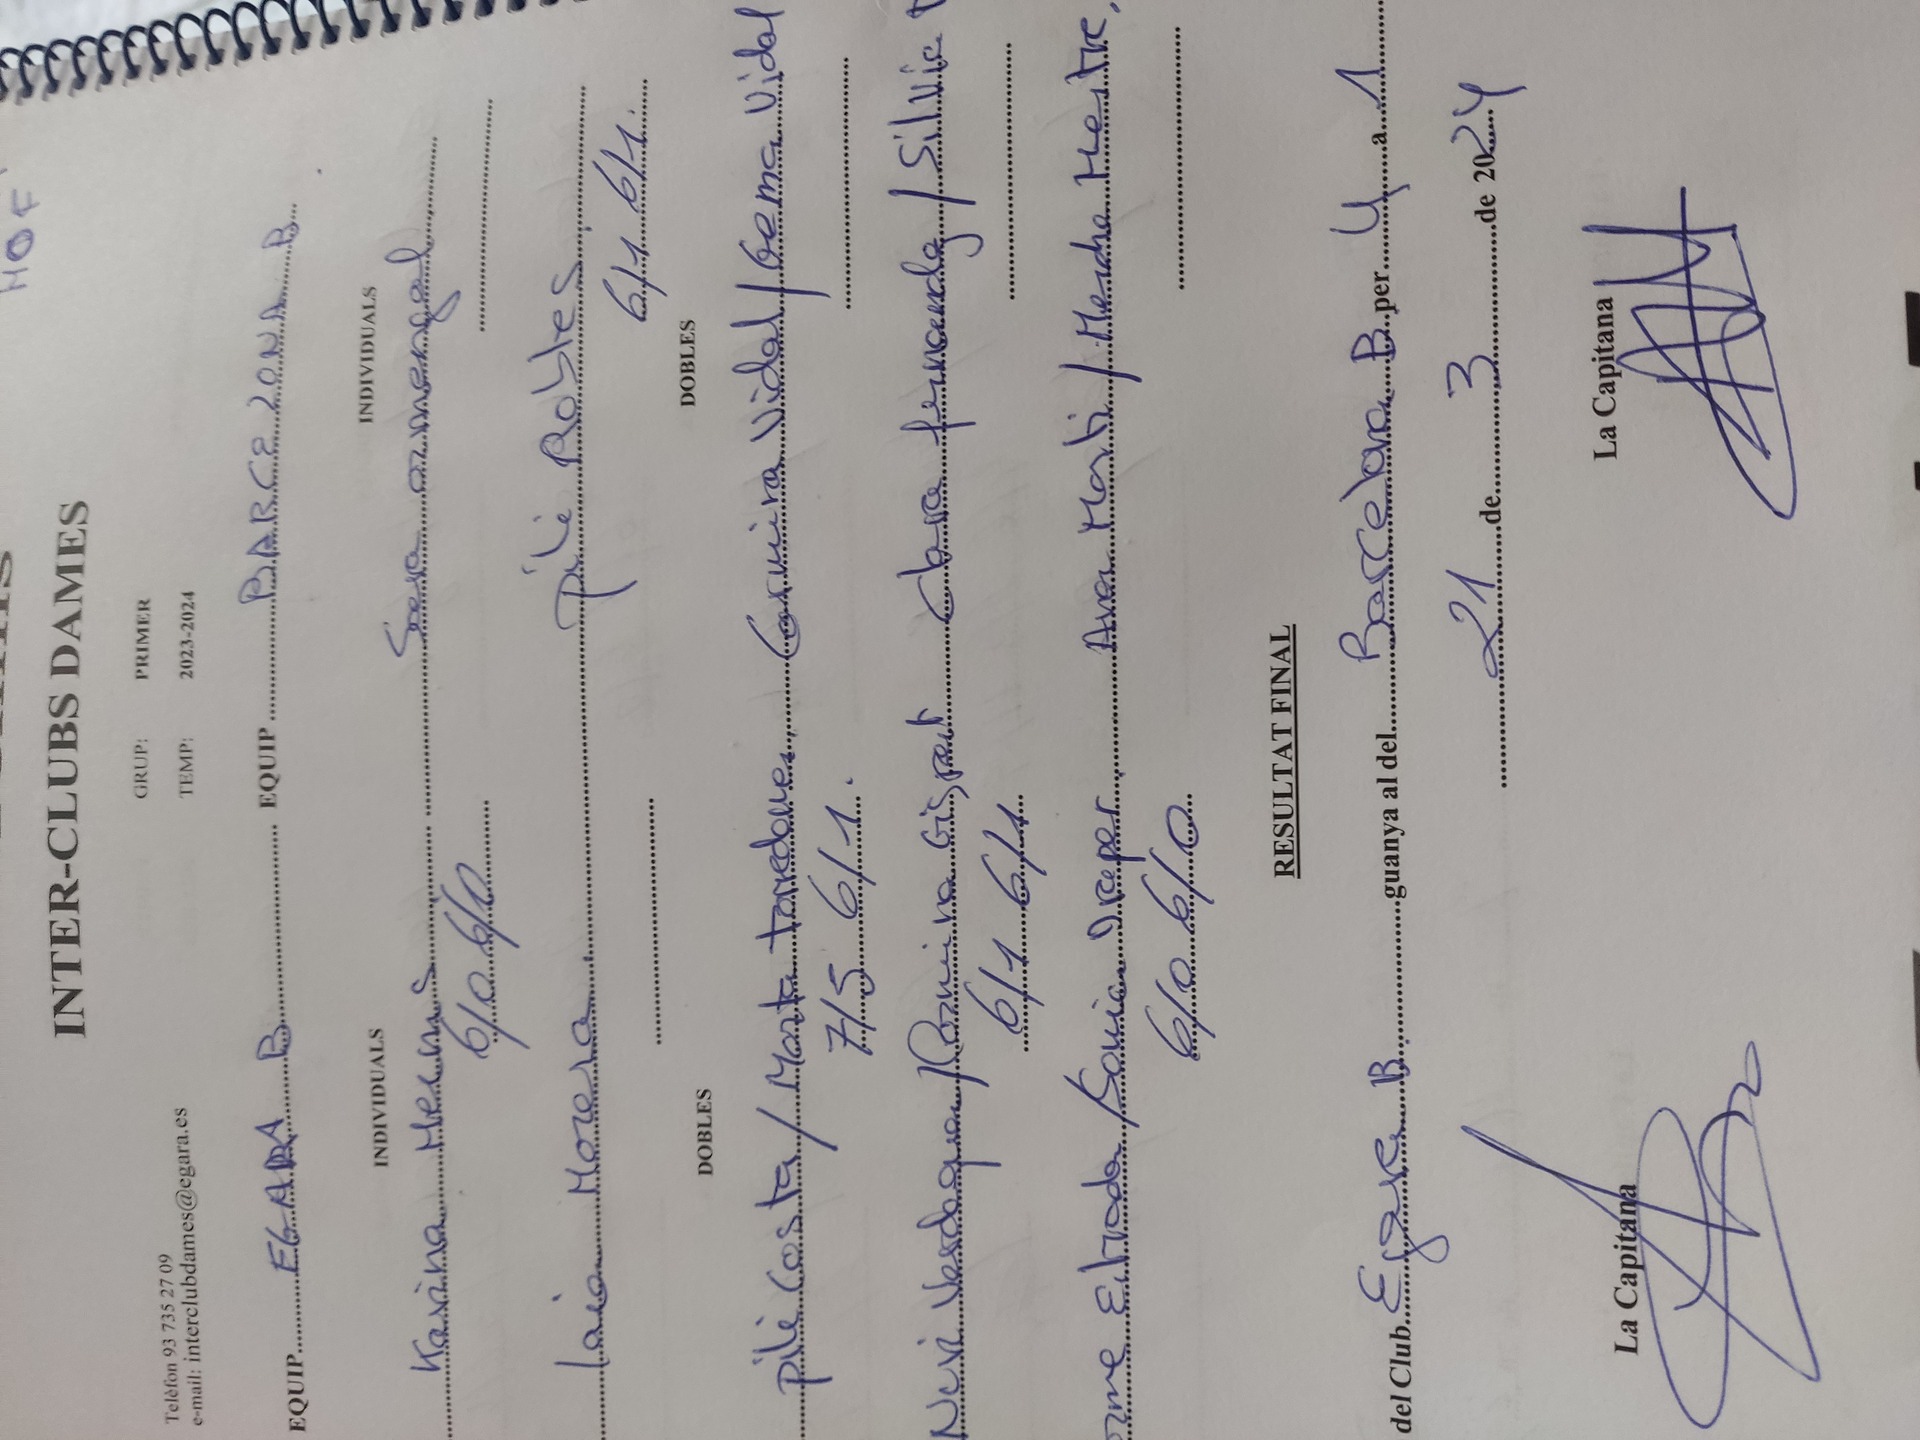 INTER-CLUBS DAMES
Telèfon 93 735 27 09
e-mail: interclubdames@egara.es
GRUP: PRIMER
TEMP: 2023-2024
EQUIP EGARA B EQUIP BARCELONA B
INDIVIDUALS INDIVIDUALS
Karina Sara armengol
6/0 6/0
Laia Morera Pili Robles
6/1 6/1.
DOBLES DOBLES
Pili Costa / Marta Carmina Vidal / Gema Vidal
7/5 6/1.
Nuri Verdaguer / Romina Gispert Clara fernandez / Silvia
6/1 6/1
Estrada / Sonia Draper Ana Marti / Mestre.
6/0 6/0
RESULTAT FINAL
del Club Egara B guanya al del Barcelona B per 4 a 1
21 de 3 de 2024
La Capitana La Capitana